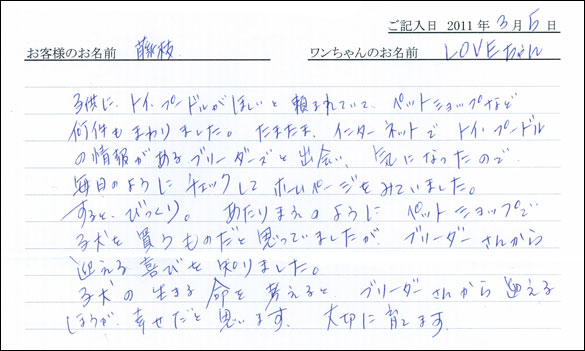 ご記入日 2011年3月5日
お客様のお名前 藤枝 ワンちゃんのお名前 LOVEちゃん
子供に、トイ・プードルがほしいと頼まれていて、ペットショップなど
何件もまわりました。たまたま、インターネットでトイ・プードル
の情報があるブリーダーズと出会い、気になったので
毎日のようにチェックしてホームページをみていました。
すると、びっくり。あたりまえのようにペットショップで
子犬を買うものだと思っていましたが、ブリーダーさんから
迎える喜びを知りました。
子犬の生きる命を考えるとブリーダーさんから迎える
ほうが、幸せだと思います。大切に育てます。